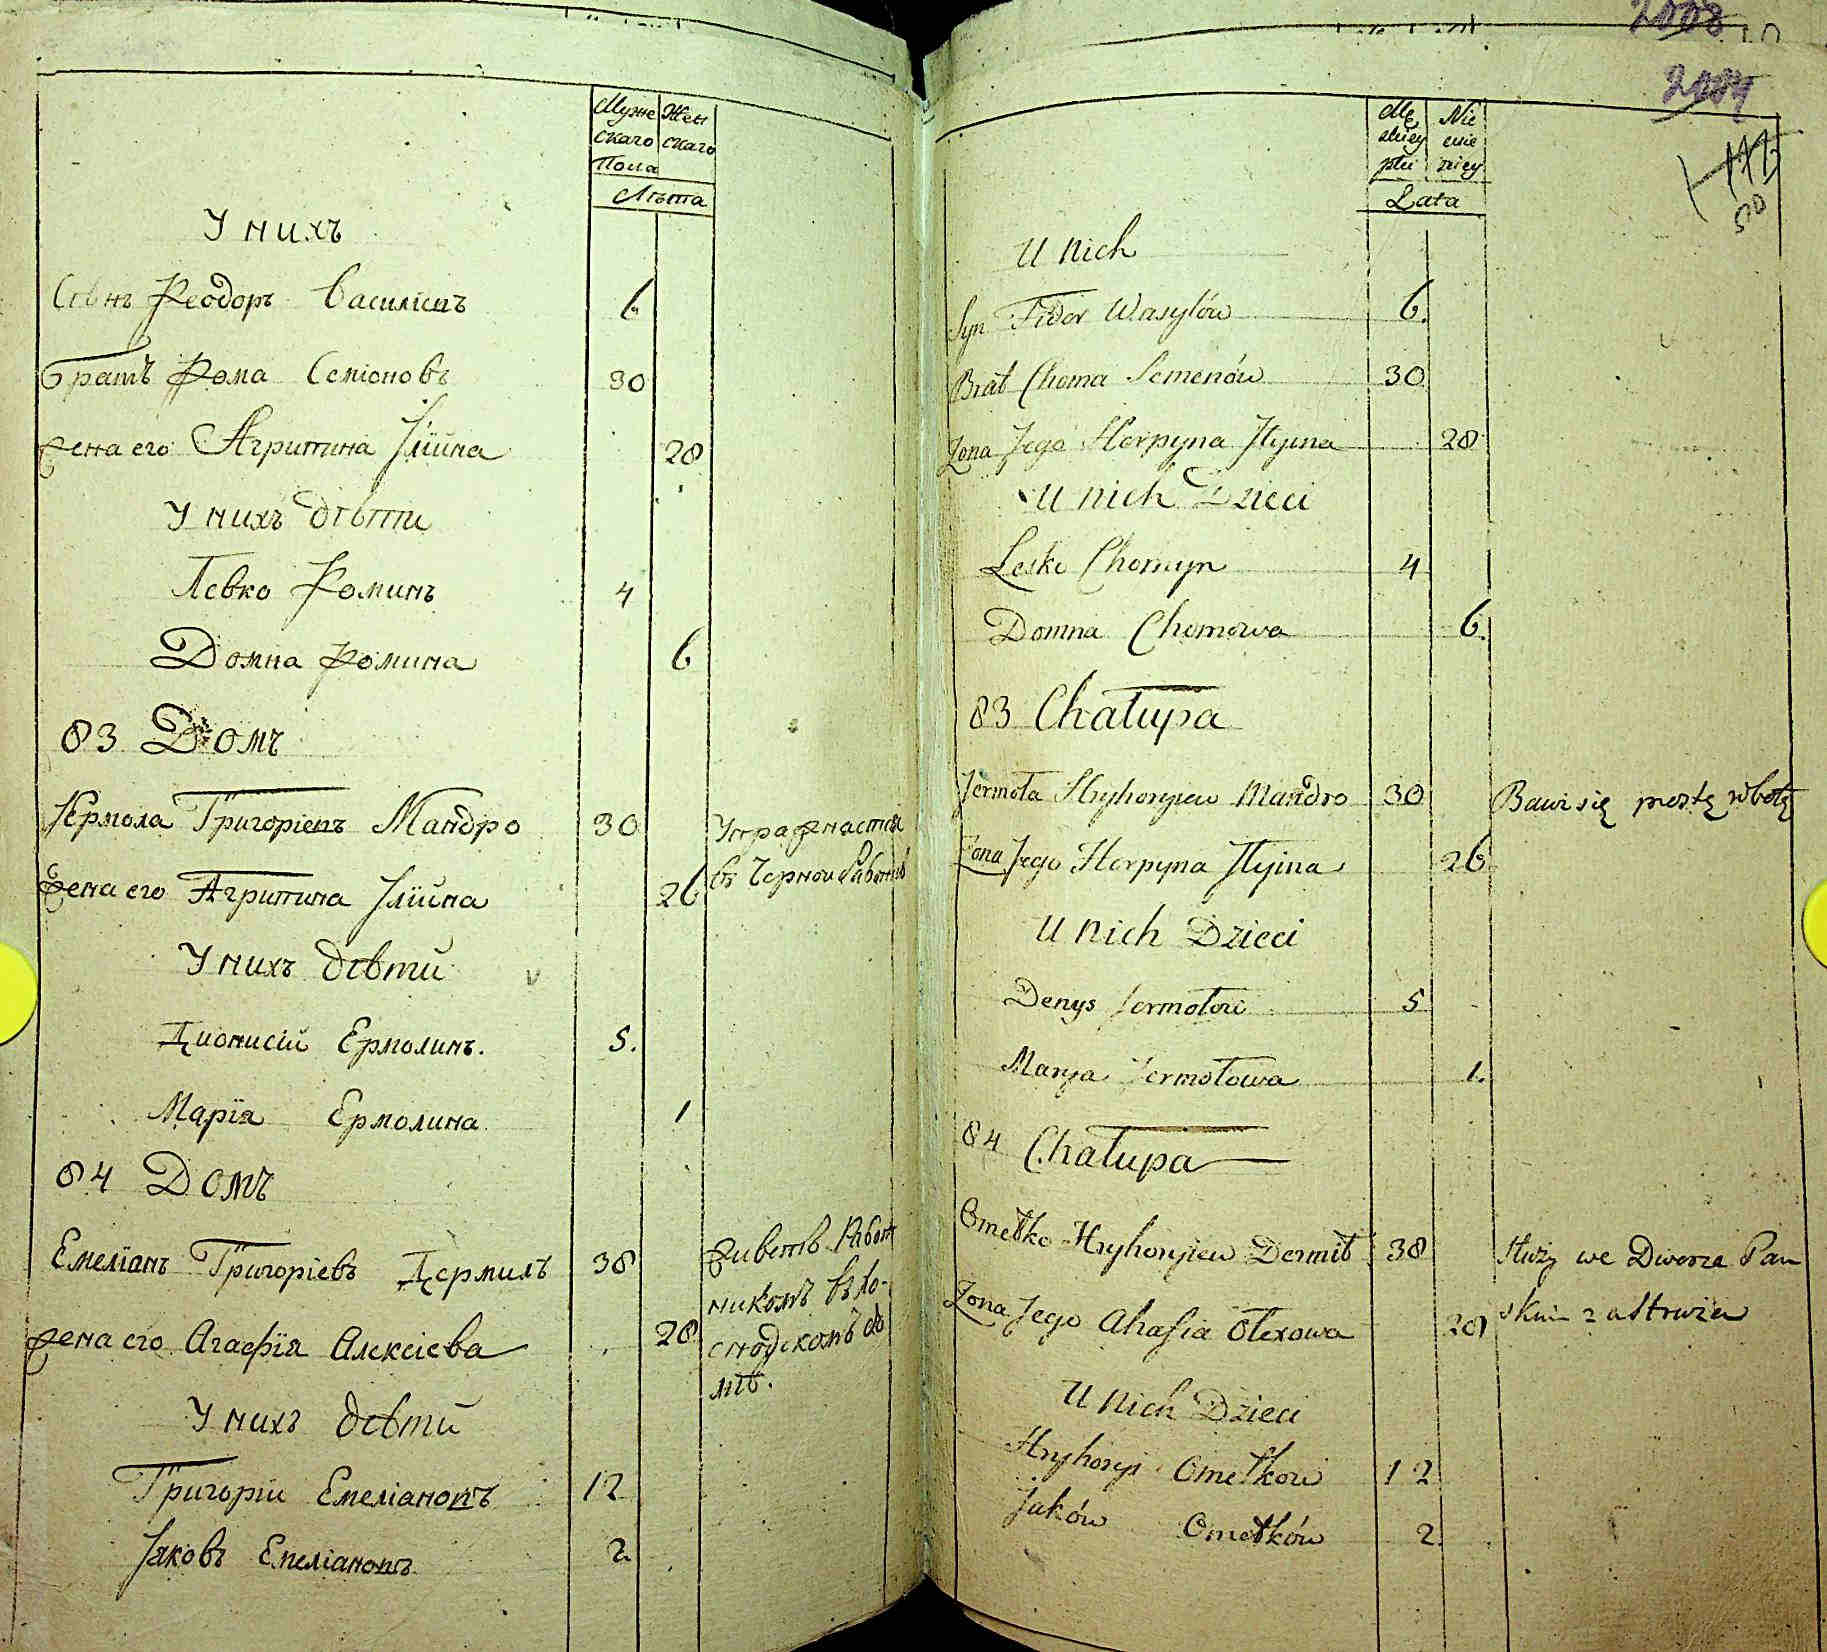 Муже Жен
скаго скаго
Пола
Лѣта
У нихъ
Сынъ Феодоръ Василіевъ 6
Братъ Фома Семіоновъ 30
Жена его Агрипина Іліина 28
У нихъ дѣти
Левко Фоминъ 4
Домна Фомина 6
83 Домъ
Ермола Григоріевъ Мандро 30 Упражнается
Жена его Агрипина Іліина 26 въ Черной Работѣ
У нихъ дѣти
Діонисій Ермолинъ. 5.
Марія Ермолина 1
84 Домъ
Емеліанъ Григоріевъ Дермилъ 38 Живетъ Работ
никомъ въ Го-
Жена его Агафія Алексіева 28 сподскомъ до
мѣ.
У нихъ дѣти
Григорій Емеліановъ 12
Іаковъ Емеліановъ 2
2008
2084
50
Mę Nie
skiey wie
płci sciey
Lata
U nich
Syn Fidor Wasylów 6.
Brat Choma Semenów 30
Zona Jego Horpyna Ilyina 28
U nich Dzieci
Lesko Chomyn 4
Domna Chomowa 6.
83 Chałupa
Jermoła Hryhoryiew Mandro 30 Bawi się prostą robotą
Zona Jego Horpyna Ilyina 26
U nich Dzieci
Denys Jermołow 5
Marya Jermołowa 1.
84 Chałupa
Omelko Hryhoryiew Dermil 38 Służy we Dworze Pan
Zona Jego Ahafia Olexowa 28 skim za Struża
U nich Dzieci
Hryhoryi Omelkow 12
Jaków Omelków 2